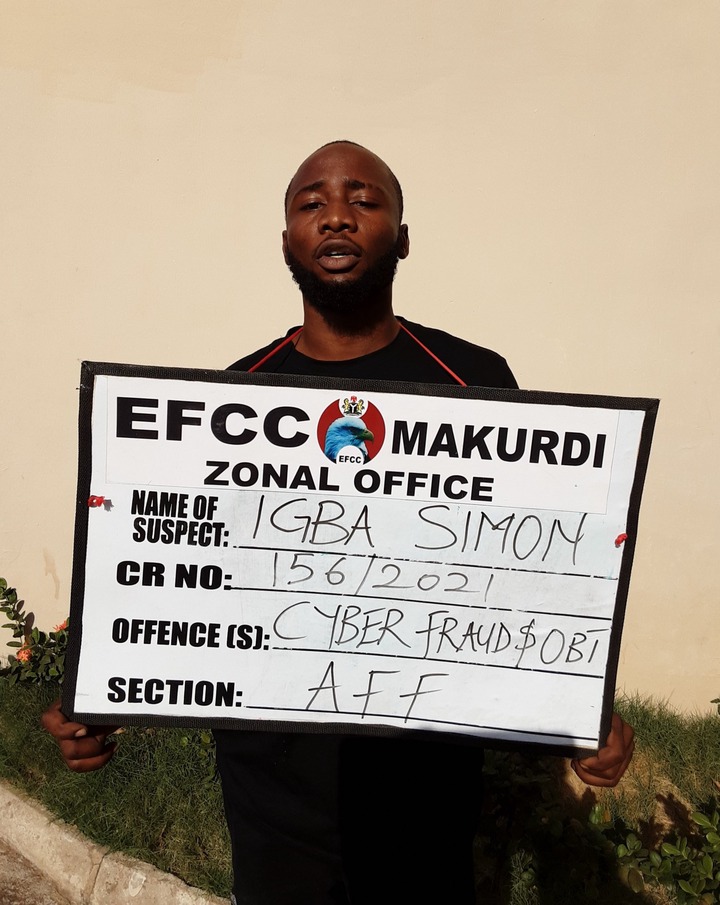 EFCC EFCC MAKURDI
ZONAL OFFICE
NAME OF
SUSPECT: IGBA SIMON
CR NO: 156/2021
OFFENCE (S): CYBER FRAUD $ OBT
SECTION: AFF